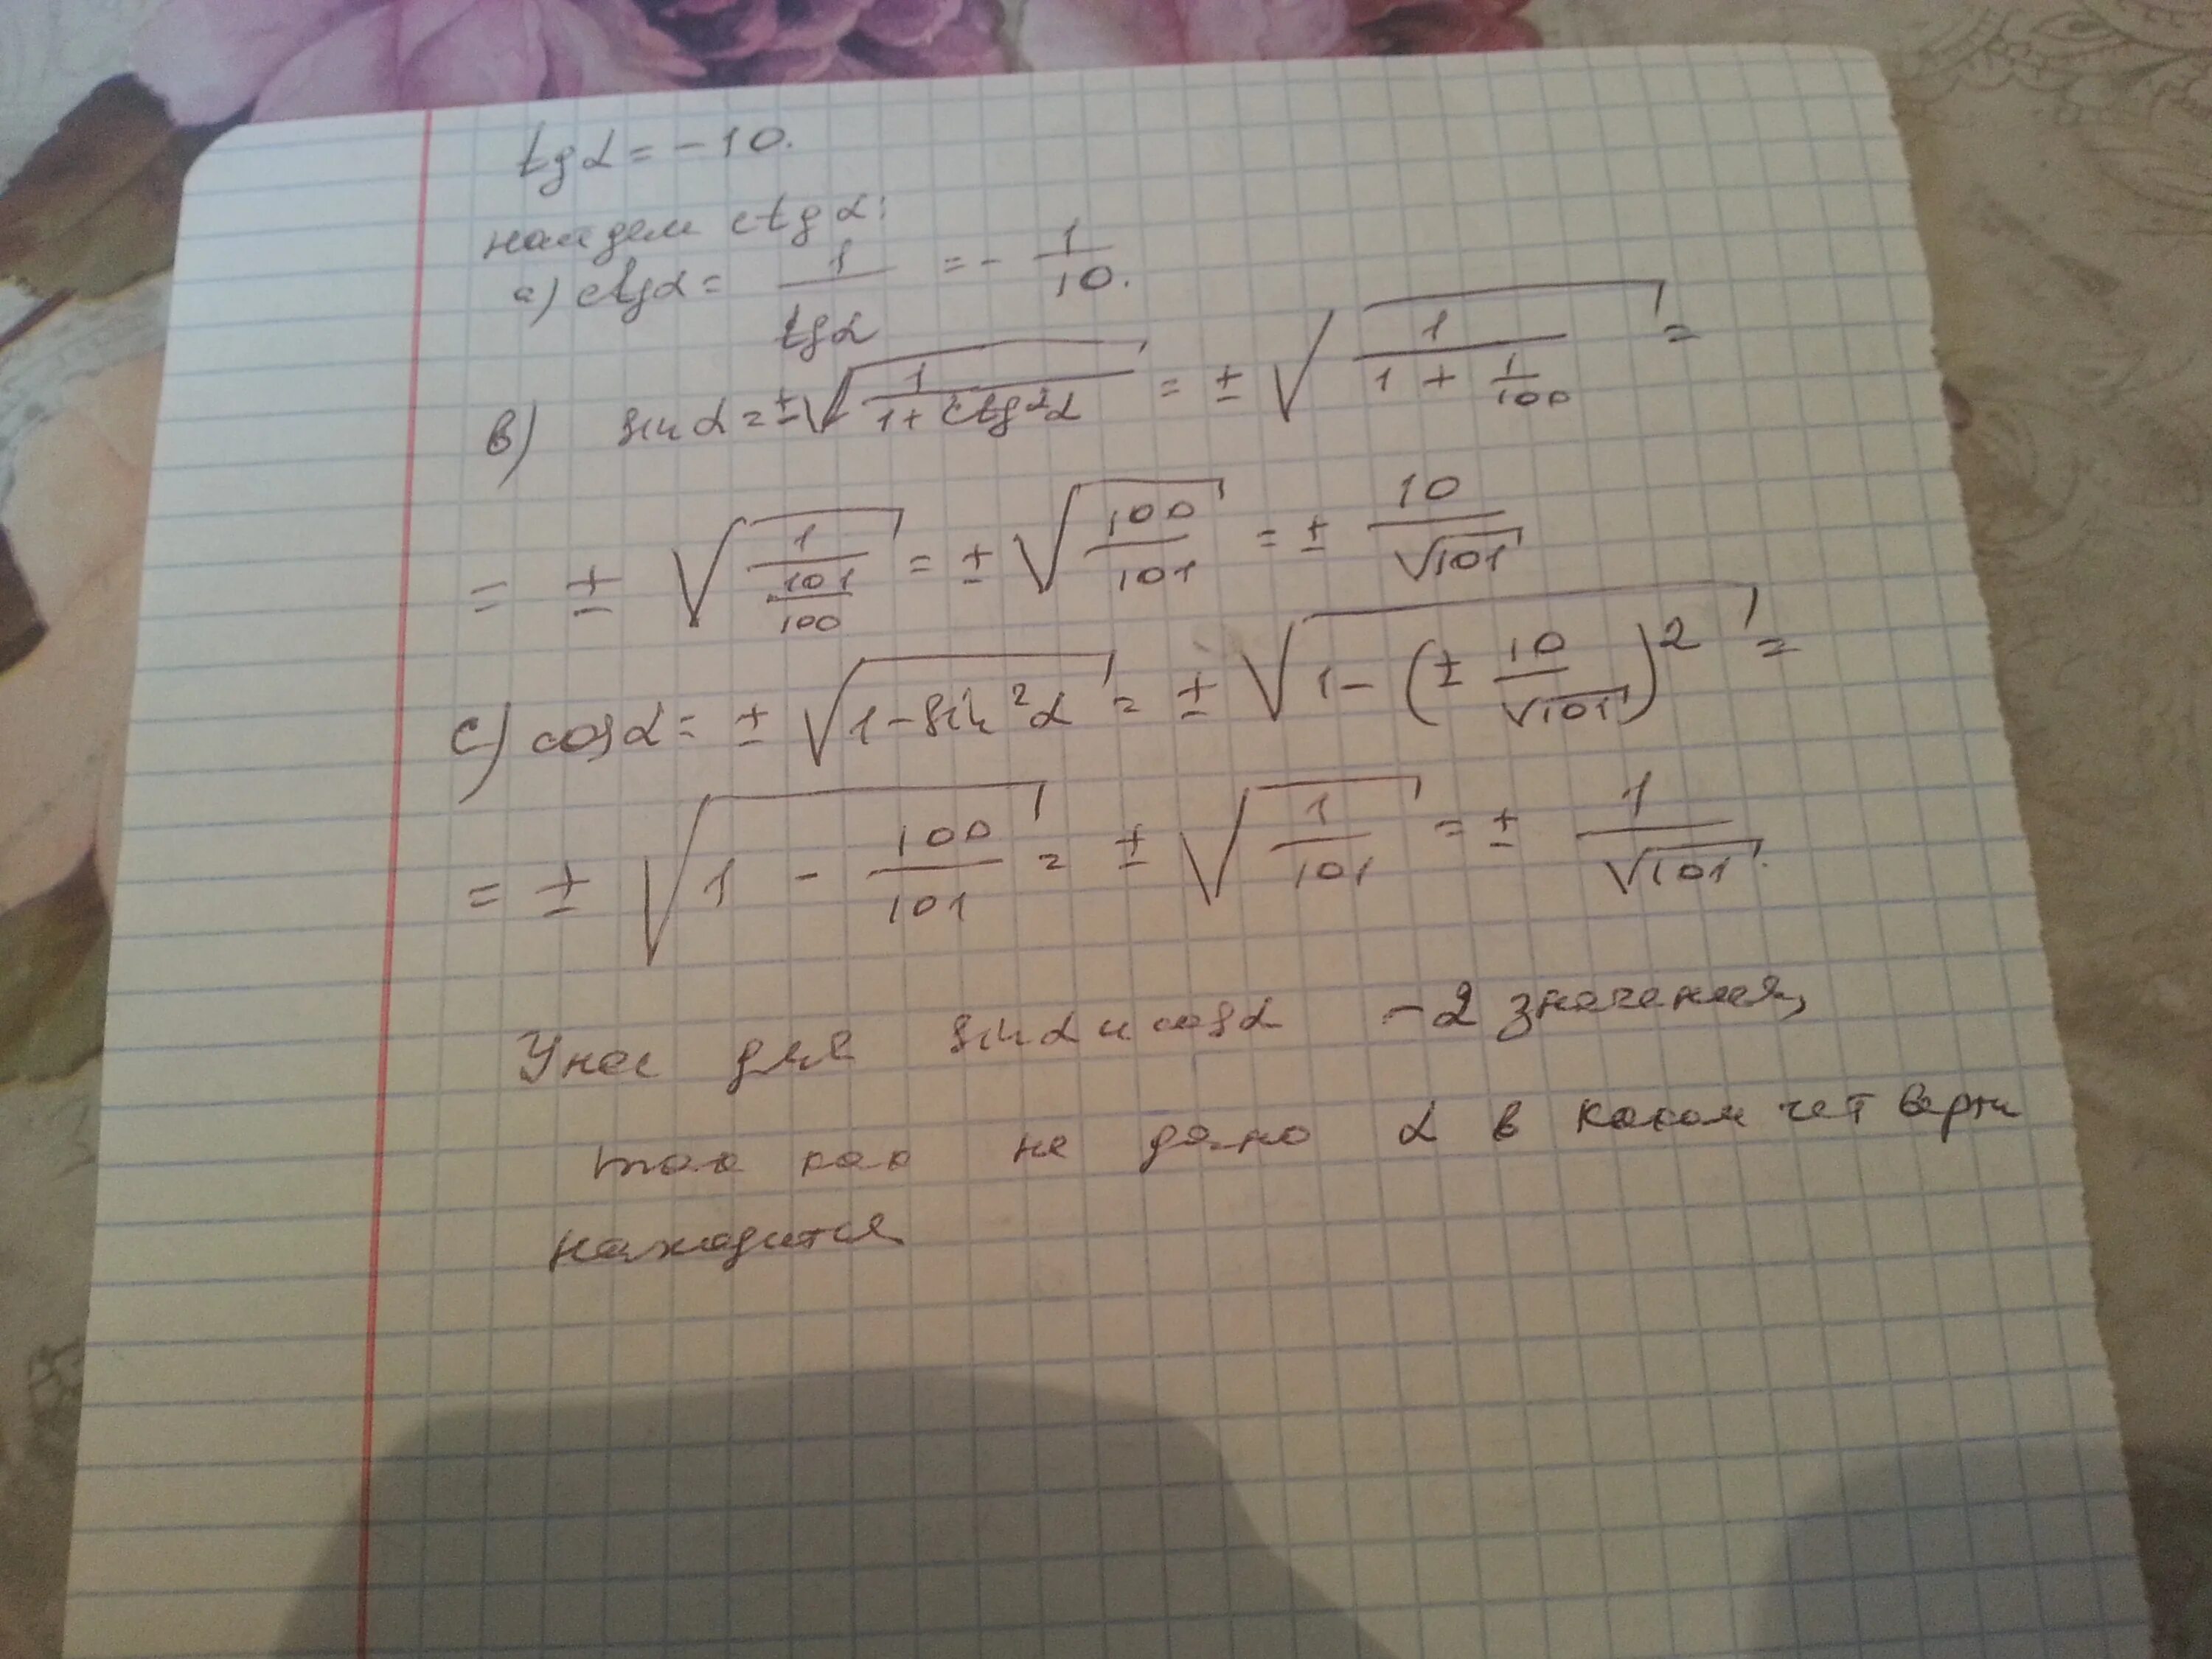 tgα = -10.
найдем ctgα:
a) ctgα = 1/tgα = - 1/10.
в) sinα = ±√(1/(1+ctg²α)) = ±√(1/(1 + 1/100)) =
= ±√(1/(101/100)) = ±√(100/101) = ± 10/√101
c) cosα = ±√(1-sin²α) = ±√(1-(± 10/√101)²) =
= ±√(1 - 100/101) = ±√(1/101) = ± 1/√101.
У нас для sinα и cosα - 2 значения,
так как не дано α в каком четверти
находится